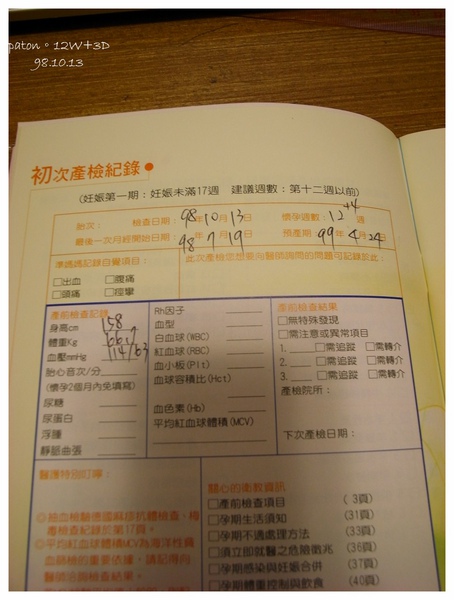 paton。12W+3D
98.10.13
初次產檢紀錄●
(妊娠第一期：妊娠未滿17週 建議週數：第十二週以前)
胎次： 檢查日期：98年10月13日 懷孕週數：12+4週
最後一次月經開始日期：98年7月19日 預產期：99年4月24日
準媽媽記錄自覺項目：
□出血 □腹痛
□頭痛 □痙攣
此次產檢您想要向醫師詢問的問題可記錄於此：
產前檢查記錄
身高cm 158
體重Kg
血壓mmHg 114/63
胎心音次/分
(懷孕2個月內免填寫)
尿糖
尿蛋白
浮腫
靜脈曲張
Rh因子
血型
白血球(WBC)
紅血球(RBC)
血小板(Plt)
血球容積比(Hct)
血色素(Hb)
平均紅血球體積(MCV)
產前檢查結果
□無特殊發現
□需注意或異常項目
1. □需追蹤 □需轉介
2. □需追蹤 □需轉介
3. □需追蹤 □需轉介
產檢院所：
下次產檢日期：
醫護特別叮嚀：
◎抽血檢驗德國麻疹抗體檢查，
專檢查紀錄於第17頁。
◎平均紅血球體積MCV為海洋性貧
血篩檢的重要依據，請記得向
醫師洽詢檢查結果。
關心的衛教資訊
□產前檢查項目 (3頁)
□孕期生活須知 (31頁)
□孕期不適處理方法 (33頁)
□須立即就醫之危險徵兆 (36頁)
□孕期感染與妊娠合併 (37頁)
□孕期體重控制與飲食 (40頁)